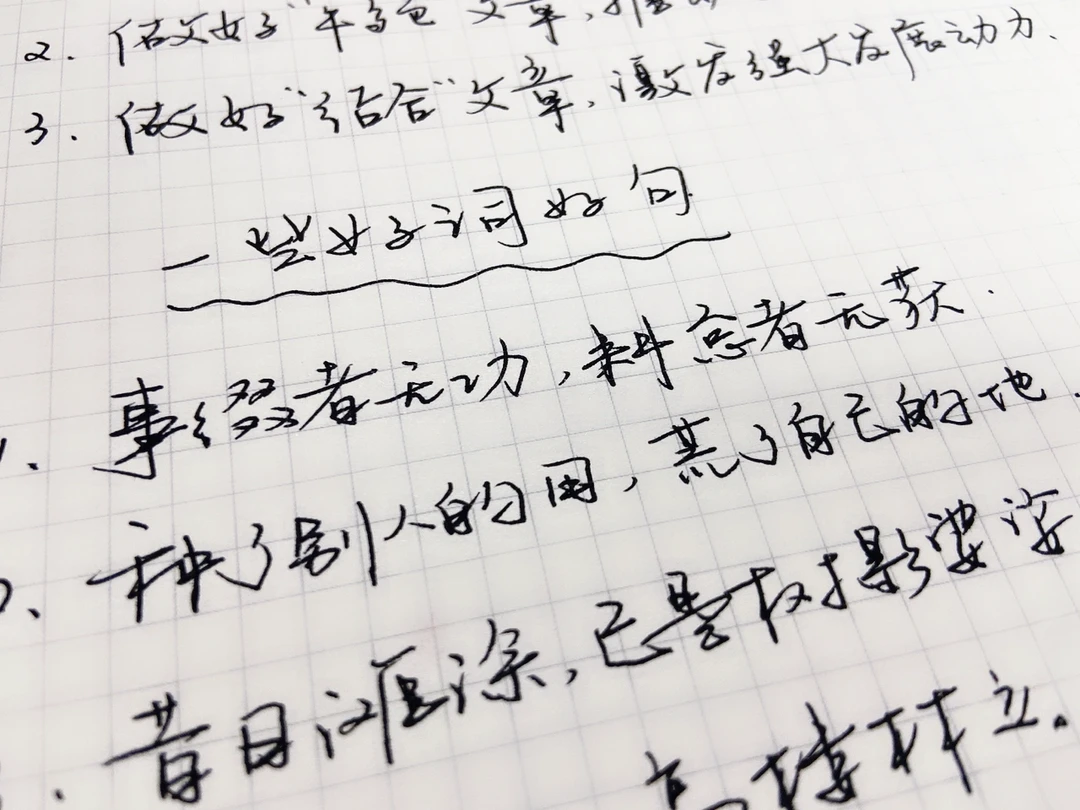 2. 做好"特色"文章,
3. 做好"结合"文章,激发强大发展动力.
一些好词好句
、事缀者无功,耕怠者无获.
、种了别人的田,荒了自己的地.
. 昔日滩涂,已是树影婆娑
高楼林立。